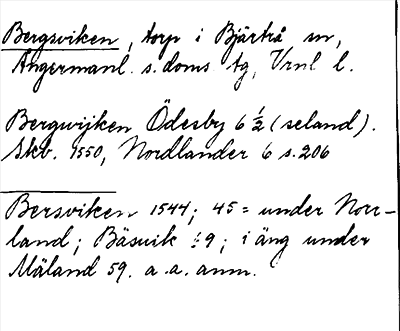 Bergsviken, torp i Bjärtrå sn,
Ångermanl. s. doms tg, Vrnl l.
Bergwijken Ödesby 6 ½ (seland).
Skb. 1550, Nordlander 6 s. 206
Bersviken 1544; 45 = under Norr-
land; Bäsuik 9; i äng under
Mäland 59. a. a. anm.